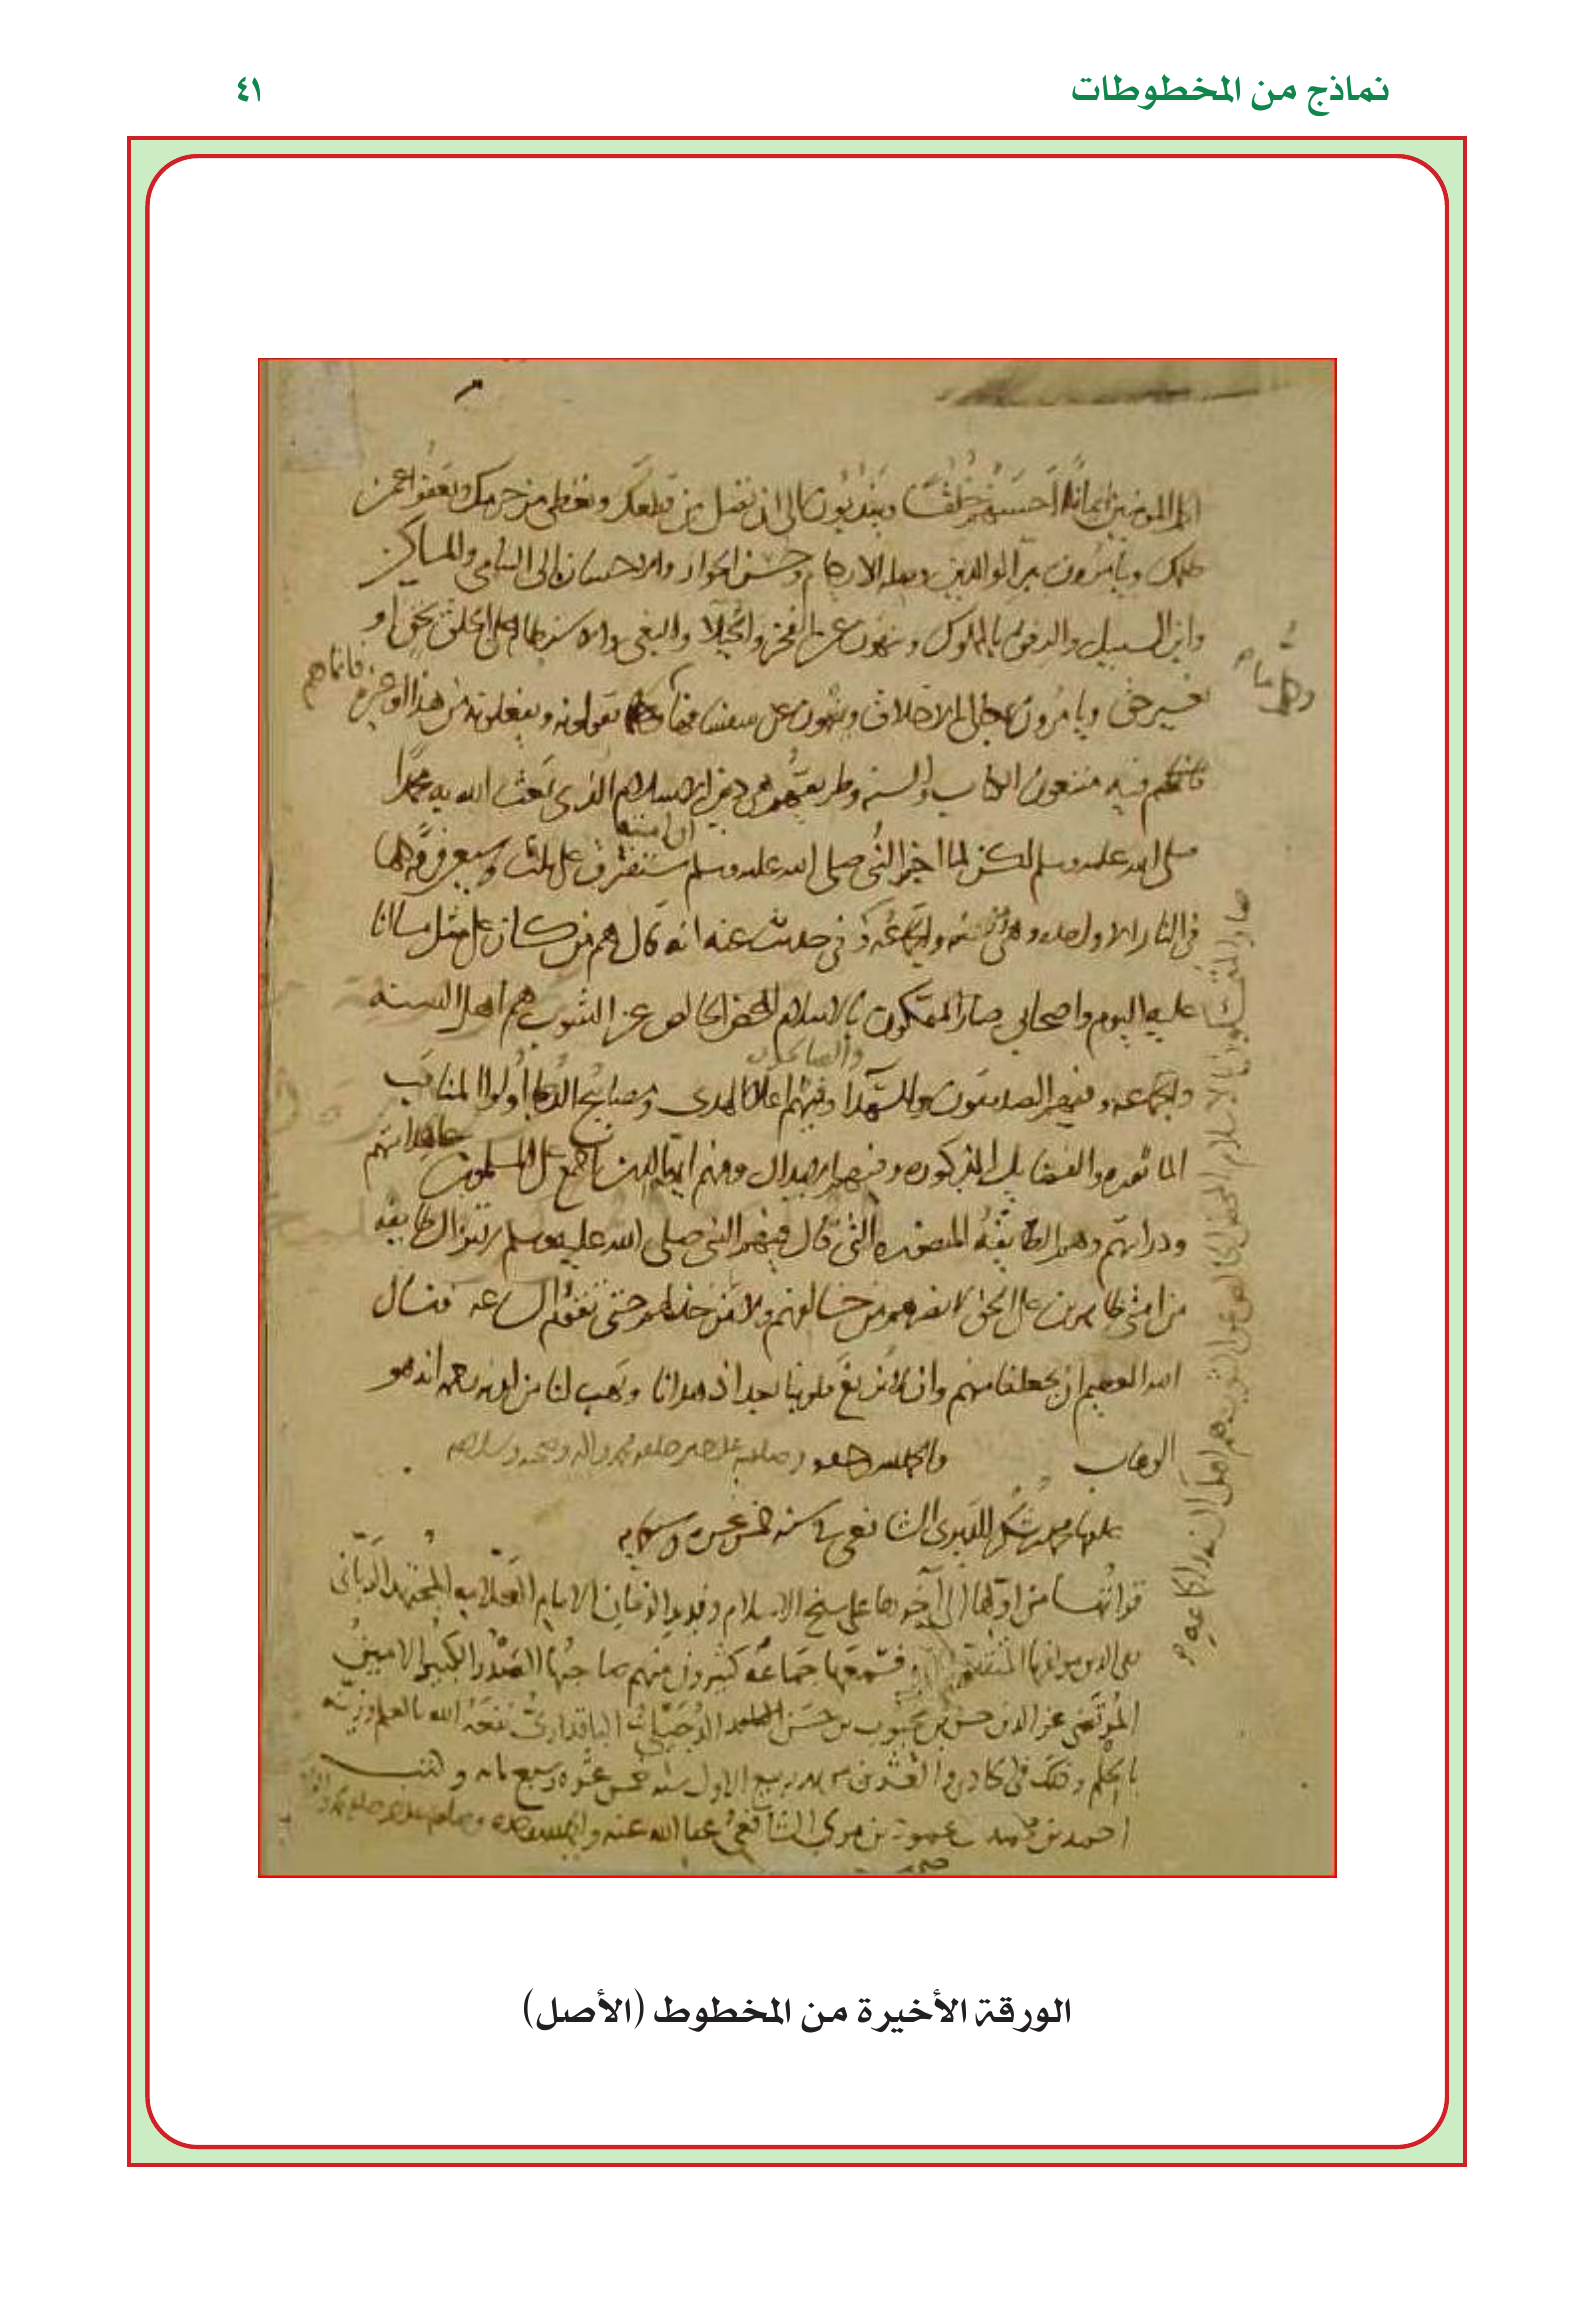 نماذج من المخطوطات
٤١
المؤمنين إيمانا أحسنهم خلقا ويندبون إلى أن تصل من قطعك وتعطي من حرمك وتعفوا عمن
ظلمك ويأمرون ببر الوالدين وصلة الأرحام وحسن الجوار والاحسان إلى اليتامى والمساكين
وابن السبيل والرفق بالمملوك وينهون عن الفخر والخيلا والبغي والاستطالة على الخلق بحق أو
بغير حق ويأمرون بمعالي الاخلاق وينهون عن سفسافها وكلما يقولونه ويفعلونه من هذا أو غيره فانما هم
فيه متبعون الكتاب والسنة وطريقتهم هي دين الاسلام الذي بعث الله به محمدا
صلى الله عليه وسلم لكن لما اخبر النبي صلى الله عليه وسلم ان امته ستفترق على ثلث وسبعين فرقة كلها
في النار الا واحدة وهي الجماعة وفي حديث عنه انه قال هم من كان على مثل ما انا
عليه اليوم واصحابي صار المتمسكون بالاسلام المحض الخالص عن الشوب هم اهل السنة
والجماعة وفيهم الصديقون والشهدا والصالحون وفيهم اعلام الهدى ومصابيح الدجا أولوا المناقب
الماثورة والفضايل المذكورة وفيهم الابدال ومنهم الذين اجمع المسلمون على هدايتهم
ودرايتهم وهم الطايفة المنصورة التي قال فيهم النبي صلى الله عليه وسلم لا تزال طايفة
من امتي ظاهرين على الحق لا يضرهم من خالفهم ولا من خذلهم حتى تقوم الساعة فنسال
الله العظيم ان يجعلنا منهم وان لا يزيغ قلوبنا بعد اذ هدانا ويهب لنا من لدنه رحمة انه هو
الوهاب والحمد لله وحده
الشافعي في سنة خمس عشرة وسبعمايه
قرأتها من اولها إلى آخرها على شيخ الاسلام وفريد الزمان الامام العلامة المجتهد الرباني
تقي الدين فسمعها جماعة كثيرون منهم صاحبها الصدر الكبير الامين
المرتضى عز الدين حسن بن حسن نفعه الله بالعلم وزينه
بالحلم وذلك في ربيع الاول سنة خمس عشرة وسبع مائة وكتب
احمد بن محمد بن مري الشافعي عفا الله عنه
صار المتمسكون بالاسلام المحض الخالص عن الشوب هم اهل السنة والجماعة
الورقة الأخيرة من المخطوط (الأصل)